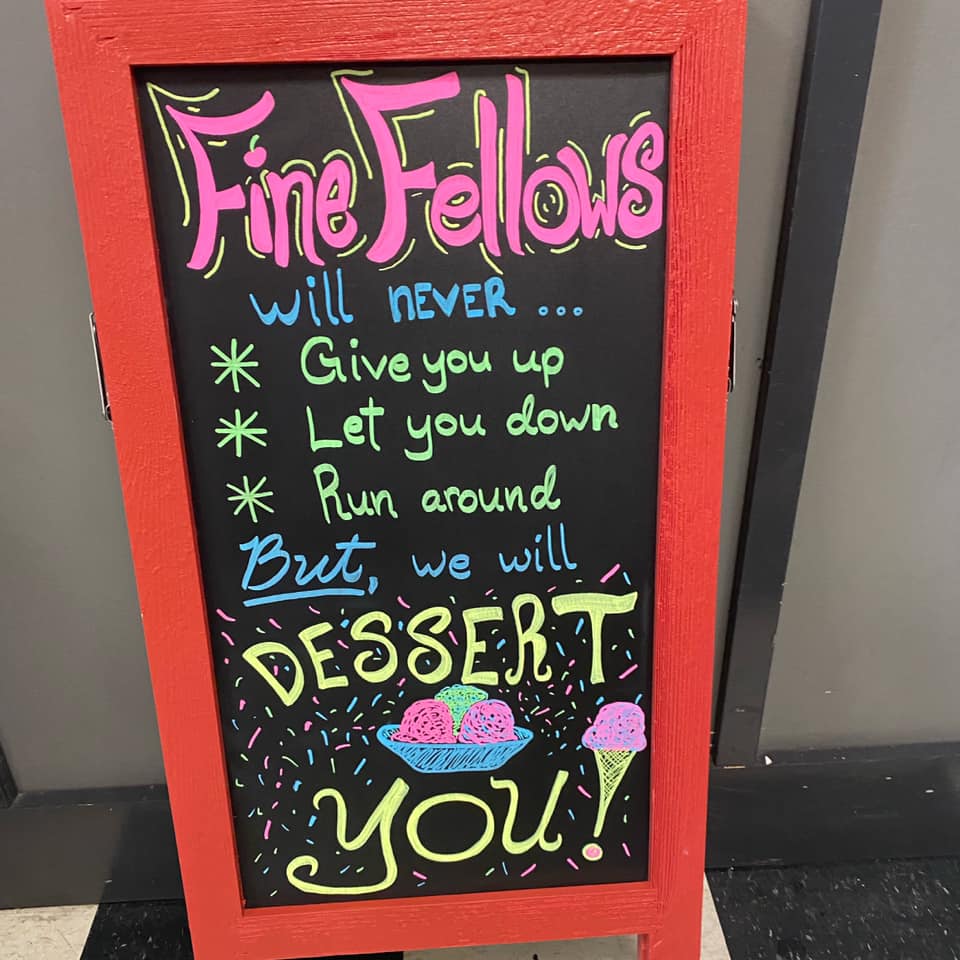 Fine Fellows
will NEVER ...
* Give you up
* Let you down
* Run around
But, we will
DESSERT
YOU!